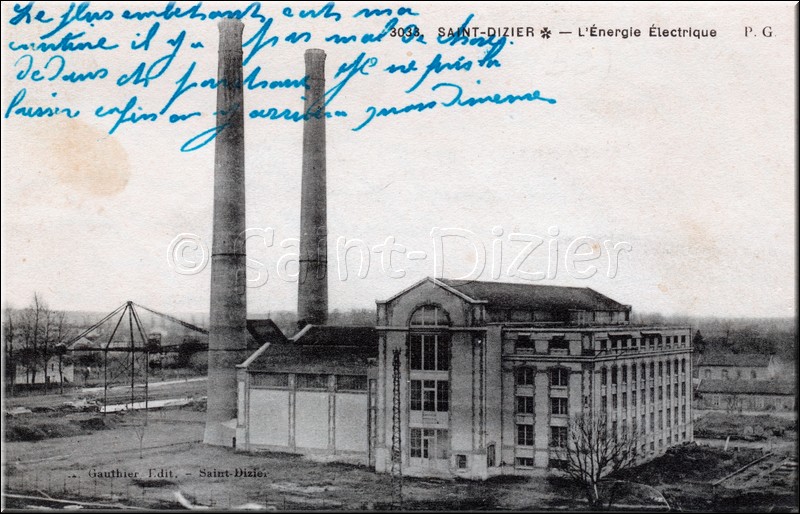 Le plus embettant cest ma
cantine il y a pas mal de
dedans et pourtant je ne puis la
laisser enfin on y arrivera quand même
3033. SAINT-DIZIER ✻ — L'Énergie Électrique P. G.
© Saint-Dizier
Gauthier Edit. - Saint-Dizier